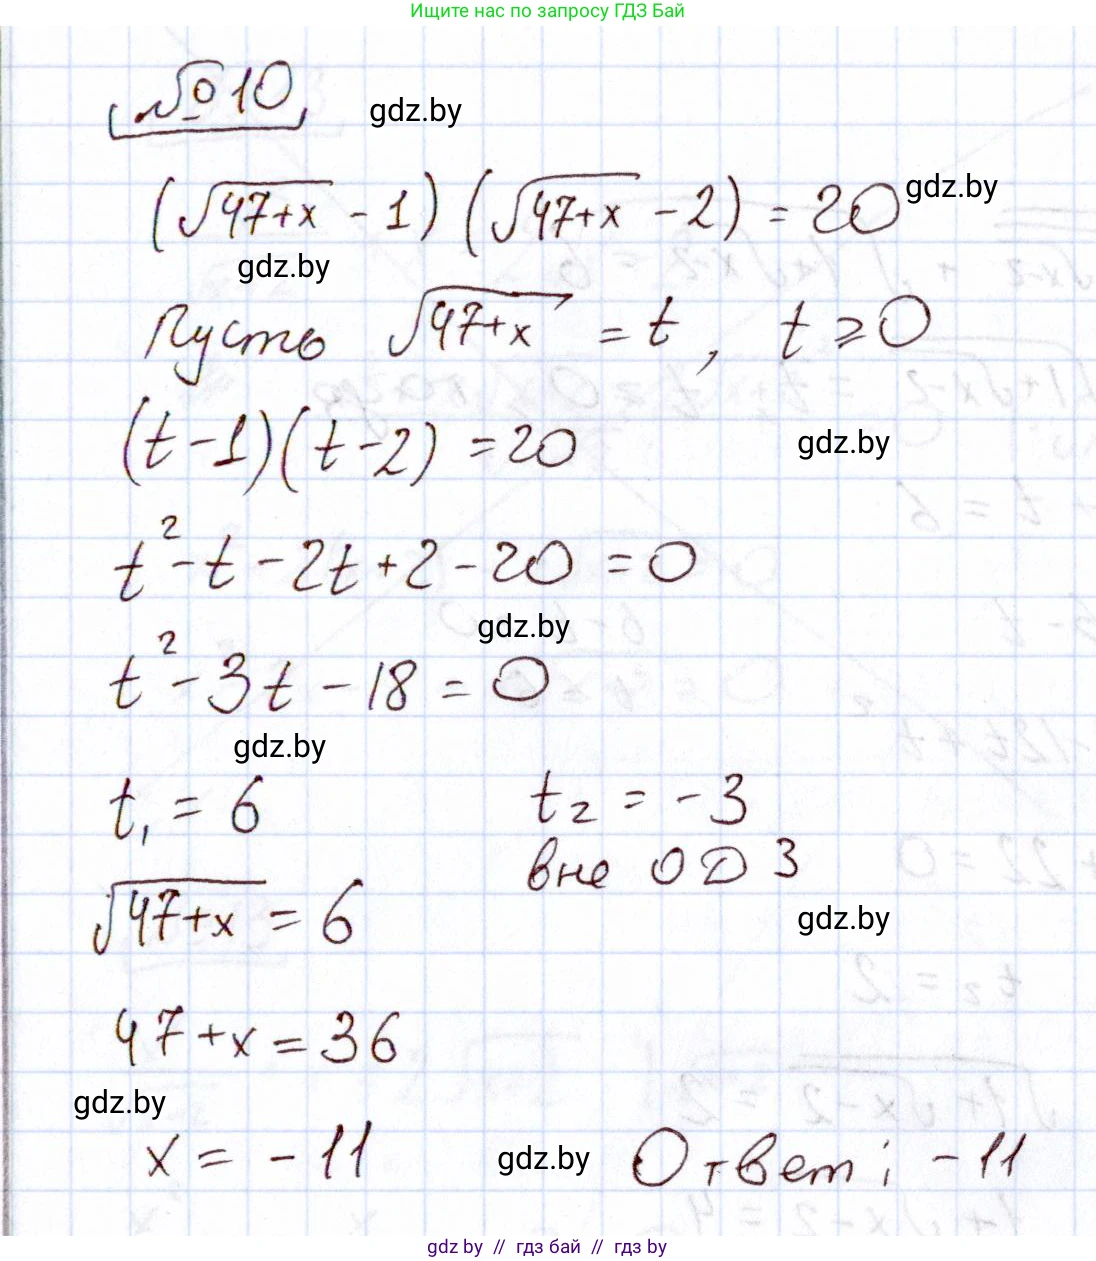 Ищите нас по запросу ГДЗ Бай
№10
gdz.by
(√47+x - 1) (√47+x - 2) = 20
gdz.by
gdz.by
Пусть √47+x = t, t ≥ 0
(t - 1)(t - 2) = 20
gdz.by
t² - t - 2t + 2 - 20 = 0
gdz.by
t² - 3t - 18 = 0
gdz.by
t₁ = 6 t₂ = -3
вне ОДЗ
√47+x = 6
gdz.by
47+x = 36
gdz.by
x = -11 gdz.by Ответ: -11
gdz by // гдз бай // гдз by